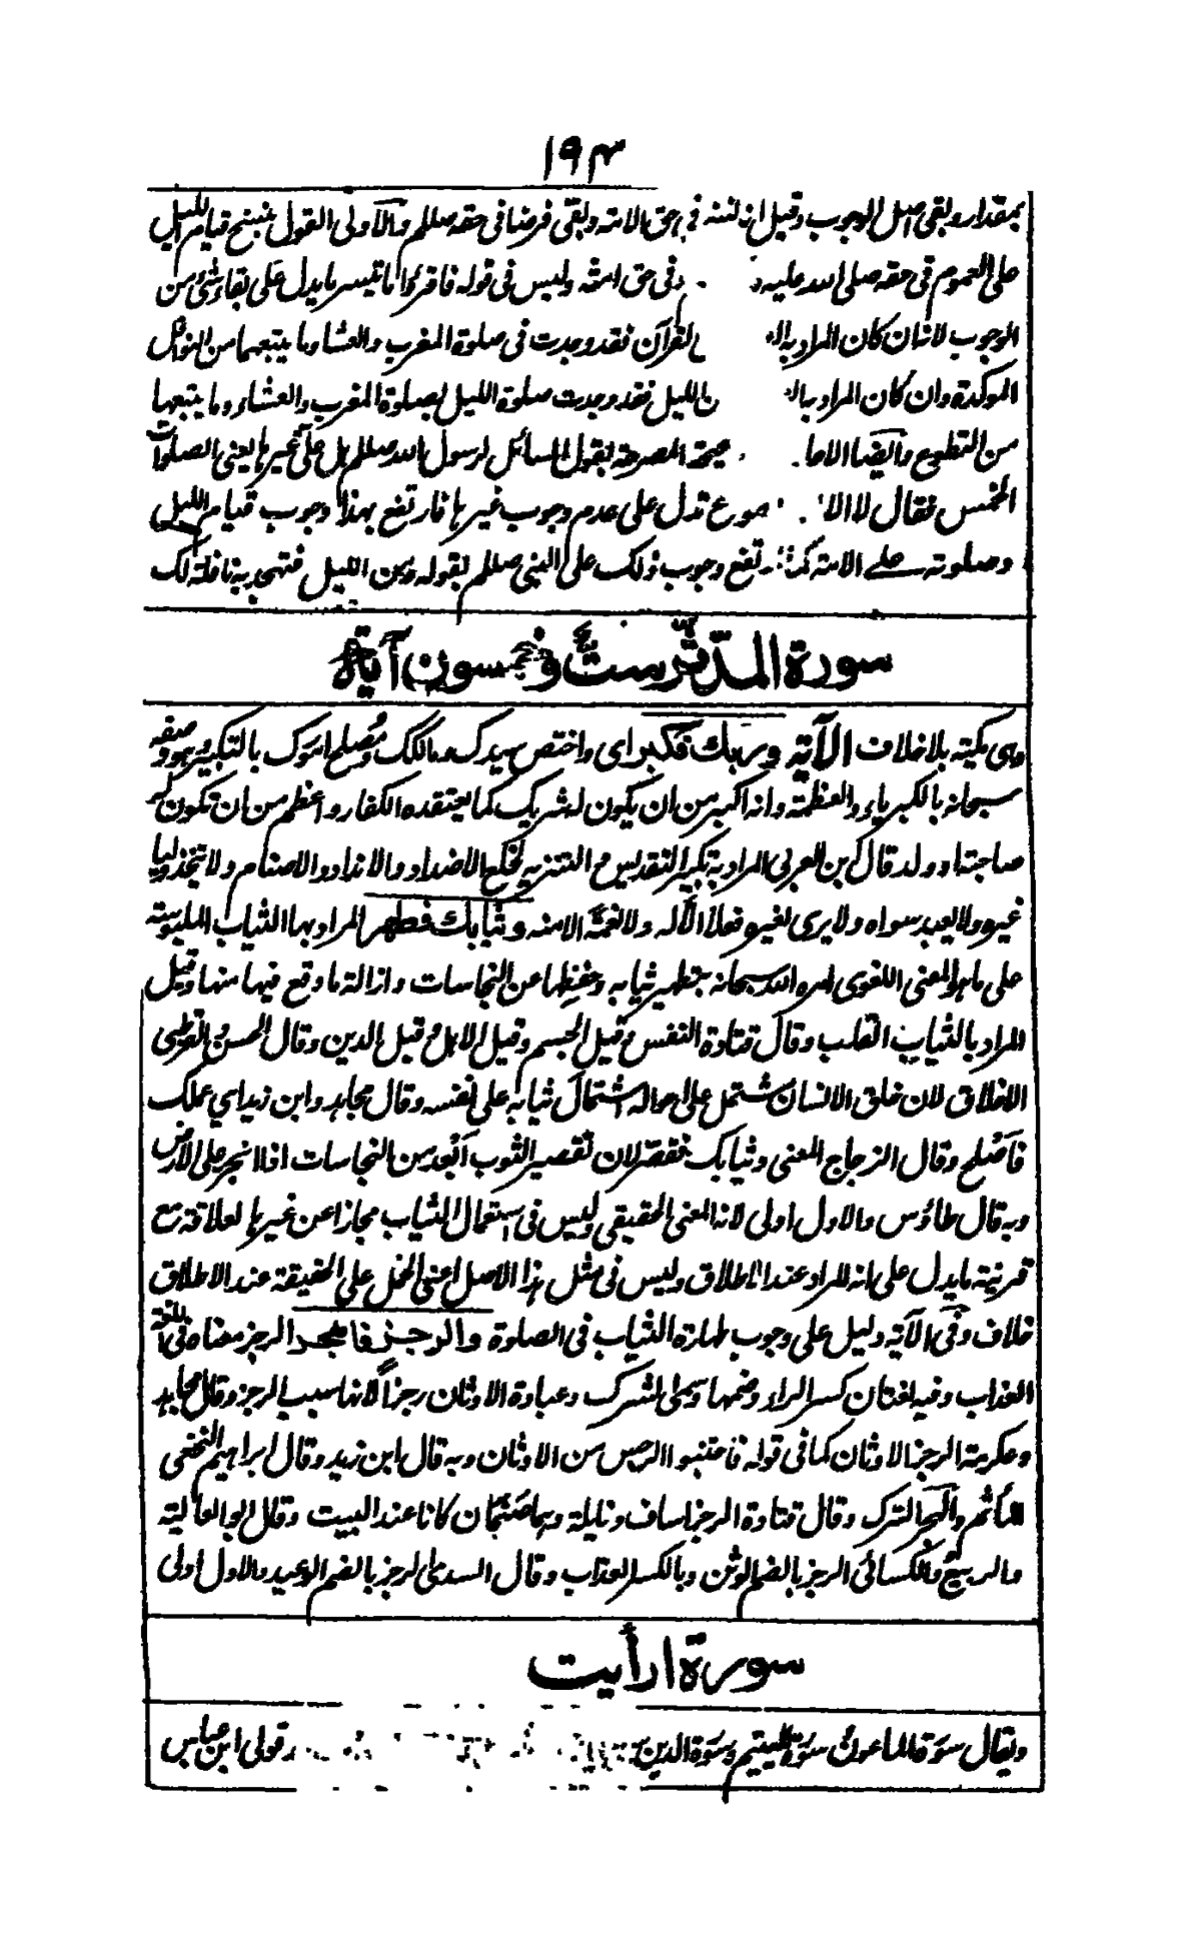 ١٩٤
بمقدار وبقى اصل الوجوب وقيل انه نسخ في حق الامة وبقى فرضا في حقه صللم والاولى القول بنسخ قيام الليل
على العموم في حقه صلى الله عليه وفي حق امته وليس في قوله فاقرؤا ما تيسر ما يدل على بقاء شئ من
الوجوب لانه ان كان المراد به القرآن فقد وجدت في صلوة المغرب والعشا وما يتبعهما من النوافل
الموكدة وان كان المراد به الليل فقد وجدت صلوة الليل بصلوة المغرب والعشاء وما يتبعها
من التطوع وايضا الاحا صحيحة المصرحة بقول السائل لرسول الله صللم هل على غيرها يعنى الصلوات
الخمس فقال لا الا تطوع تدل على عدم وجوب غيرها فارتفع بهذا وجوب قيام الليل
وصلوته على الامة كما ارتفع وجوب ذلك على النبي صللم بقوله ومن الليل فتهجد به نافلة لك
سورة المدثر ست وخمسون آية
وهي مكية بلا خلاف الآية وربك فكبر اى واختص سيدك ومالكك ومصلح امورك بالتكبير وهو وصفه
سبحانه بالكبرياء والعظمة وانه اكبر من ان يكون له شريك كما يعتقده الكفار واعظم من ان تكون له
صاحبة او ولد قال ابن العربي المراد به تكبير التقديس والتنزيه لخلع الاضداد والانداد والاصنام ولا تتخذ وليا
غيره ولا يعبد سواه ولا يرى لغيره فعلا الا له ولا نعمة الا منه وثيابك فطهر المراد بها الثياب الملبوسة
على ما هو المعنى اللغوى امره الله سبحانه بتطهير ثيابه وحفظها عن النجاسات وازالة ما وقع فيها منها وقيل
المراد بالثياب القلب وقال قتادة النفس وقيل الجسم وقيل الاهل وقيل الدين وقال الحسن والقرطبى
الاخلاق لان خلق الانسان مشتمل على احواله اشتمال ثيابه على نفسه وقال مجاهد وابن زيد اي عملك
فاصلح وقال الزجاج المعنى وثيابك فقصر لان تقصير الثوب ابعد من النجاسات اذا انجر على الارض
وبه قال طاؤس والاول اولى لانه المعنى الحقيقي وليس في استعمال الثياب مجازا عن غيرها لعلاقة مع
قرينة ما يدل على انه المراد عند الاطلاق وليس في مثل هذا الاصل اعنى الحمل على الحقيقة عند الاطلاق
خلاف وفى الآية دليل على وجوب طهارة الثياب في الصلوة والرجز فاهجر الرجز معناه في اللغة
العذاب وفيه لغتان كسر الراء وضمها وسمى الشرك وعبادة الاوثان رجزا لانها سبب الرجز وقال مجاهد
وعكرمة الرجز الاوثان كما في قوله فاجتنبوا الرجس من الاوثان وبه قال ابن زيد وقال ابراهيم النخعى
المأثم والهجر الترك وقال قتادة الرجز اساف ونايلة وهما صنمان كانا عند البيت وقال ابو العالية
والربيع والكسائى الرجز بالضم الوثن وبالكسر العذاب وقال السدى الرجز بالضم الوعيد والاول اولى
سورة ارأيت
ويقال سورة الماعون وسورة اليتيم وسورة الدين قولى ابن عباس